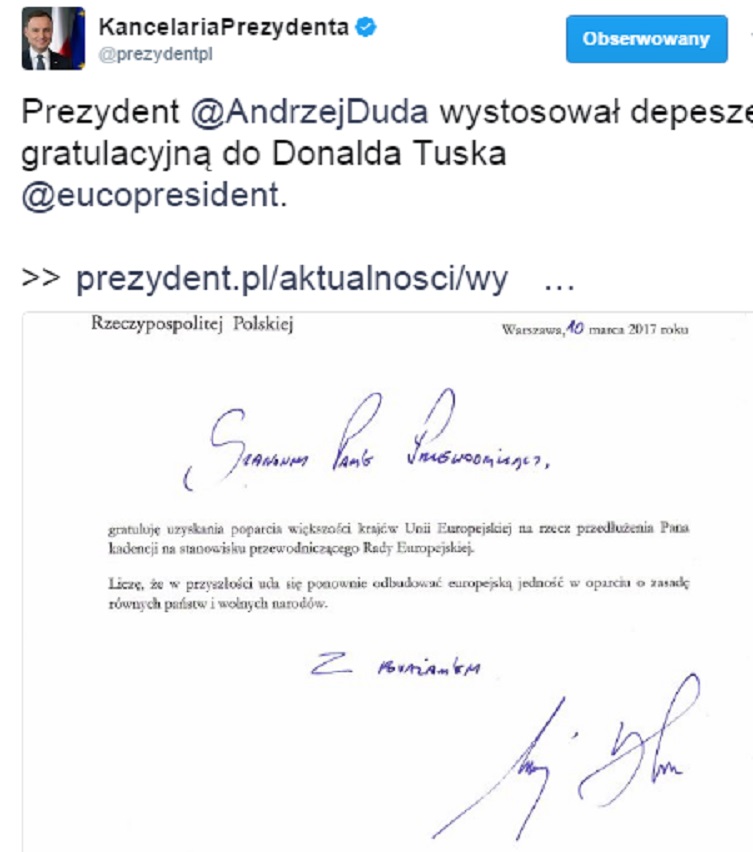 KancelariaPrezydenta
@prezydentpl
Obserwowany
Prezydent @AndrzejDuda wystosował depesze
gratulacyjną do Donalda Tuska
@eucopresident.
>> prezydent.pl/aktualnosci/wy ...
Rzeczypospolitej Polskiej
Warszawa, 10 marca 2017 roku
Szanowny Panie Przewodniczący,
gratuluję uzyskania poparcia większości krajów Unii Europejskiej na rzecz przedłużenia Pana
kadencji na stanowisku przewodniczącego Rady Europejskiej.
Liczę, że w przyszłości uda się ponownie odbudować europejską jedność w oparciu o zasadę
równych państw i wolnych narodów.
Z poważaniem